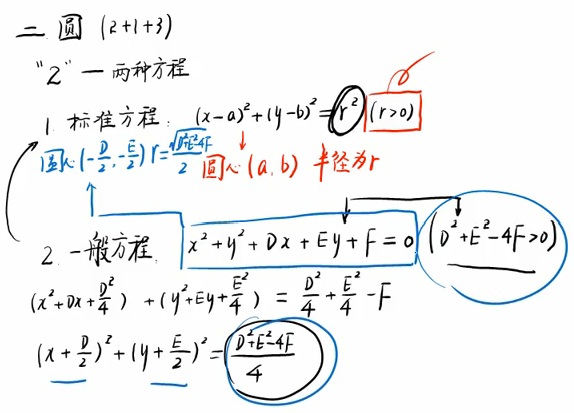 二 圆 (2+1+3)
"2" — 两种方程
1. 标准方程: (x-a)²+(y-b)²=r² (r>0)
圆心(-D/2,-E/2) r=√(D²+E²-4F)/2 圆心(a,b) 半径为r
2. 一般方程. x²+y²+Dx+Ey+F=0 (D²+E²-4F>0)
(x²+Dx+D²/4)+(y²+Ey+E²/4)=D²/4+E²/4-F
(x+D/2)²+(y+E/2)²=(D²+E²-4F)/4